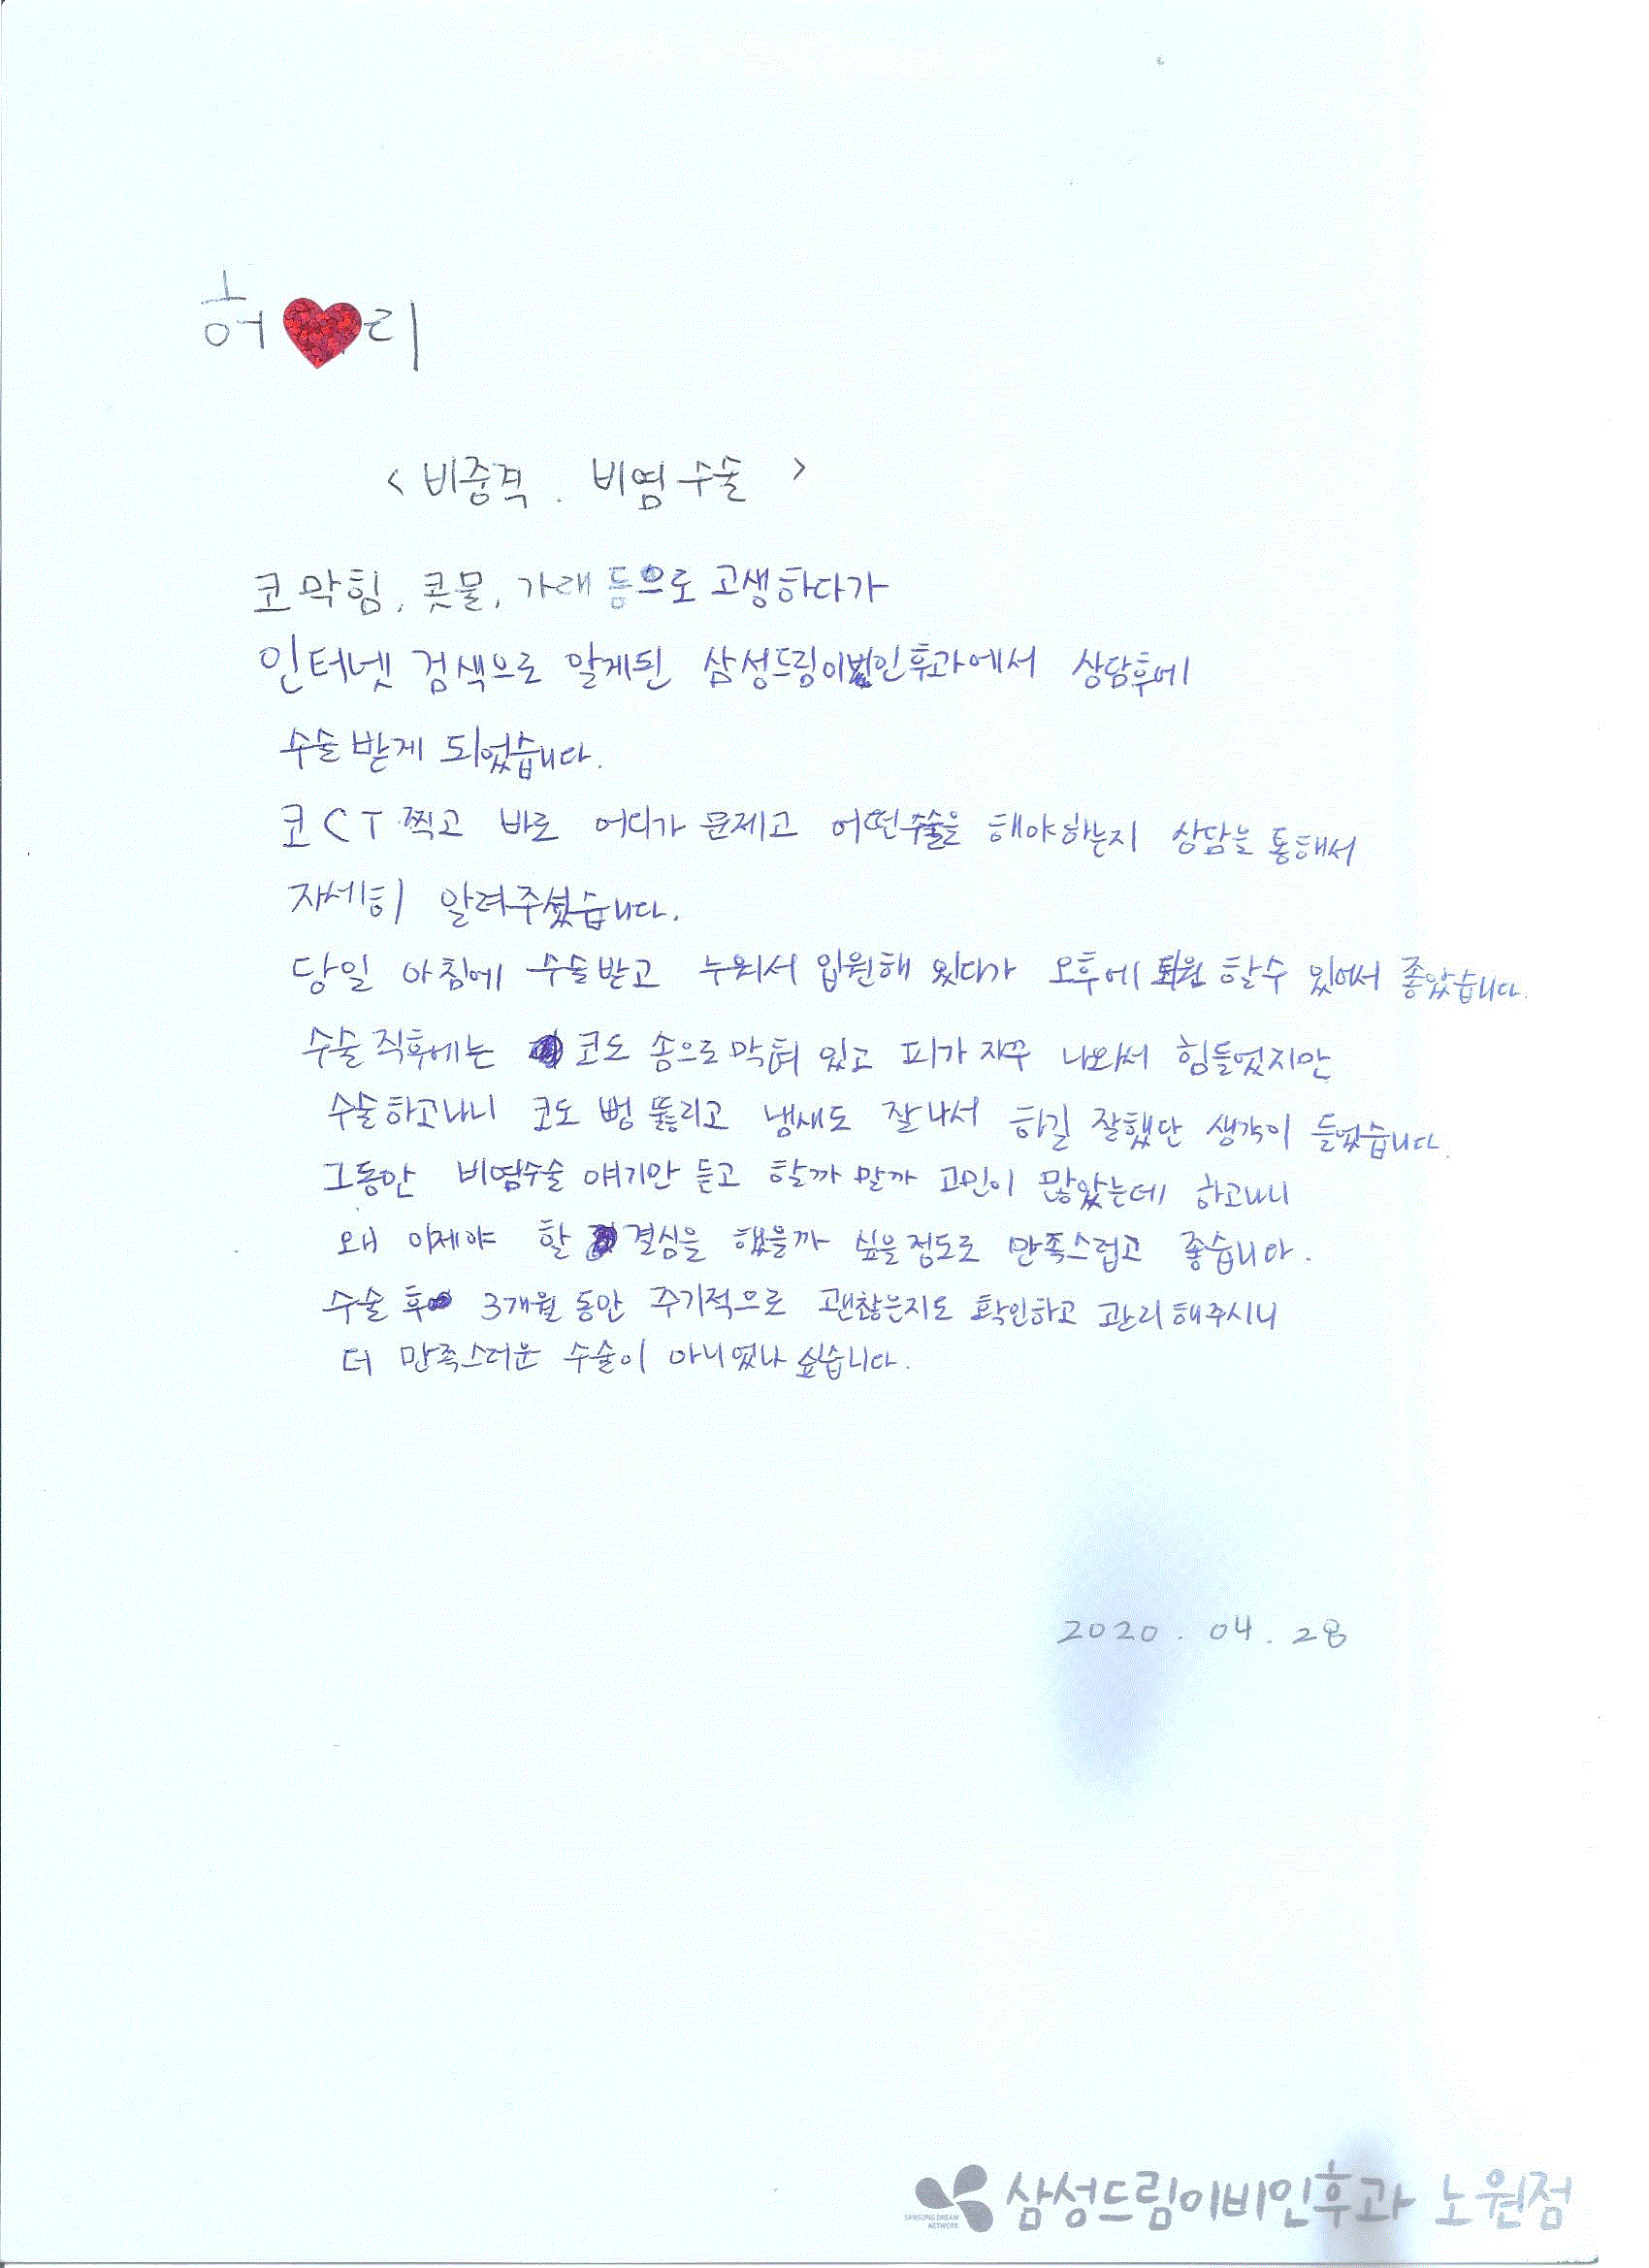 허❤리
<비중격. 비염수술>
코막힘, 콧물, 가래 등으로 고생하다가
인터넷 검색으로 알게된 삼성드림이비인후과에서 상담후에
수술받게 되었습니다.
코CT 찍고 바로 어디가 문제고 어떤수술을 해야하는지 상담을 통해서
자세히 알려주셨습니다.
당일 아침에 수술받고 누워서 입원해 있다가 오후에 퇴원 할수 있어서 좋았습니다.
수술 직후에는 코도 솜으로 막혀 있고 피가 자꾸 나와서 힘들었지만
수술하고나니 코도 뻥 뚫리고 냄새도 잘나서 하길 잘했단 생각이 들었습니다.
그동안 비염수술 얘기만 듣고 할까 말까 고민이 많았는데 하고나니
왜 이제야 할 결심을 했을까 싶을정도로 만족스럽고 좋습니다.
수술 후 3개월 동안 주기적으로 괜찮은지도 확인하고 관리해주시니
더 만족스러운 수술이 아니었나 싶습니다.
2020. 04. 28
SAMSUNG DREAM NETWORK 삼성드림이비인후과 노원점